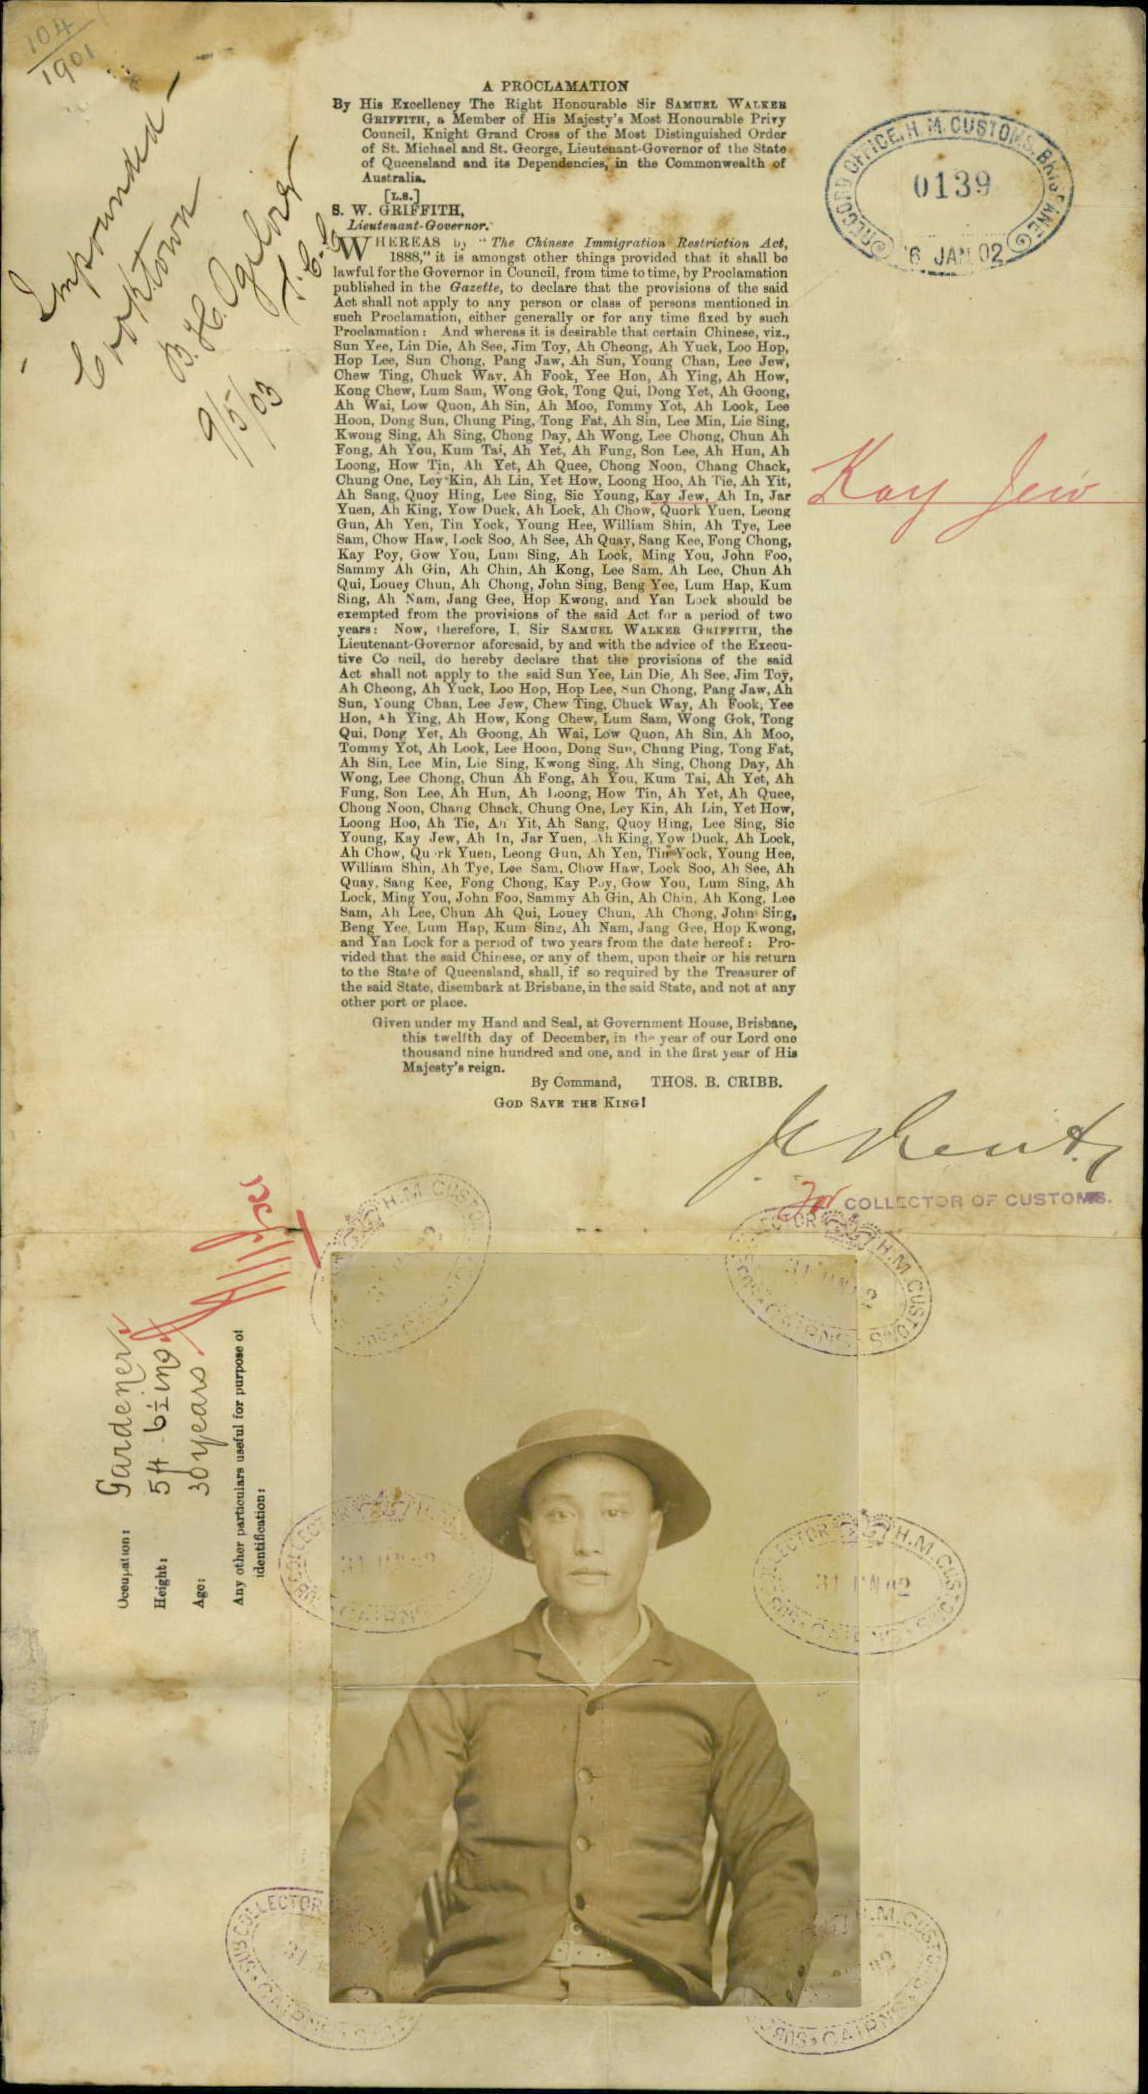 104
1901
- Impounded -
Cooktown
B. H. Ogilvy
S. C. C.
9/5/03
A PROCLAMATION
By His Excellency The Right Honourable Sir SAMUEL WALKER
GRIFFITH, a Member of His Majesty's Most Honourable Privy
Council, Knight Grand Cross of the Most Distinguished Order
of St. Michael and St. George, Lieutenant-Governor of the State
of Queensland and its Dependencies, in the Commonwealth of
Australia.
[L.S.]
S. W. GRIFFITH,
Lieutenant-Governor.
WHEREAS by "The Chinese Immigration Restriction Act,
1888," it is amongst other things provided that it shall be
lawful for the Governor in Council, from time to time, by Proclamation
published in the Gazette, to declare that the provisions of the said
Act shall not apply to any person or class of persons mentioned in
such Proclamation, either generally or for any time fixed by such
Proclamation: And whereas it is desirable that certain Chinese, viz.,
Sun Yee, Lin Die, Ah See, Jim Toy, Ah Cheong, Ah Yuck, Loo Hop,
Hop Lee, Sun Chong, Pang Jaw, Ah Sun, Young Chan, Lee Jew,
Chew Ting, Chuck Way, Ah Fook, Yee Hon, Ah Ying, Ah How,
Kong Chew, Lum Sam, Wong Gok, Tong Qui, Dong Yet, Ah Goong,
Ah Wai, Low Quon, Ah Sin, Ah Moo, Tommy Yot, Ah Look, Lee
Hoon, Dong Sun, Chung Ping, Tong Fat, Ah Sin, Lee Min, Lie Sing,
Kwong Sing, Ah Sing, Chong Day, Ah Wong, Lee Chong, Chun Ah
Fong, Ah You, Kum Tai, Ah Yet, Ah Fung, Son Lee, Ah Hun, Ah
Loong, How Tin, Ah Yet, Ah Quee, Chong Noon, Chang Chack,
Chung One, Ley Kin, Ah Lin, Yet How, Loong Hoo, Ah Tie, Ah Yit,
Ah Sang, Quoy Hing, Lee Sing, Sic Young, Kay Jew, Ah In, Jar
Yuen, Ah King, Yow Duck, Ah Lock, Ah Chow, Quork Yuen, Leong
Gun, Ah Yen, Tin Yock, Young Hee, William Shin, Ah Tye, Lee
Sam, Chow Haw, Lock Soo, Ah See, Ah Quay, Sang Kee, Fong Chong,
Kay Poy, Gow You, Lum Sing, Ah Lock, Ming You, John Foo,
Sammy Ah Gin, Ah Chin, Ah Kong, Lee Sam, Ah Lee, Chun Ah
Qui, Louey Chun, Ah Chong, John Sing, Beng Yee, Lum Hap, Kum
Sing, Ah Nam, Jang Gee, Hop Kwong, and Yan Lock should be
exempted from the provisions of the said Act for a period of two
years: Now, therefore, I, Sir SAMUEL WALKER GRIFFITH, the
Lieutenant-Governor aforesaid, by and with the advice of the Execu-
tive Co ncil, do hereby declare that the provisions of the said
Act shall not apply to the said Sun Yee, Lin Die, Ah See, Jim Toy,
Ah Cheong, Ah Yuck, Loo Hop, Hop Lee, Sun Chong, Pang Jaw, Ah
Sun, Young Chan, Lee Jew, Chew Ting, Chuck Way, Ah Fook, Yee
Hon, Ah Ying, Ah How, Kong Chew, Lum Sam, Wong Gok, Tong
Qui, Dong Yet, Ah Goong, Ah Wai, Low Quon, Ah Sin, Ah Moo,
Tommy Yot, Ah Look, Lee Hoon, Dong Sun, Chung Ping, Tong Fat,
Ah Sin, Lee Min, Lie Sing, Kwong Sing, Ah Sing, Chong Day, Ah
Wong, Lee Chong, Chun Ah Fong, Ah You, Kum Tai, Ah Yet, Ah
Fung, Son Lee, Ah Hun, Ah Loong, How Tin, Ah Yet, Ah Quee,
Chong Noon, Chang Chack, Chung One, Ley Kin, Ah Lin, Yet How,
Loong Hoo, Ah Tie, Ah Yit, Ah Sang, Quoy Hing, Lee Sing, Sic
Young, Kay Jew, Ah In, Jar Yuen, Ah King, Yow Duck, Ah Lock,
Ah Chow, Qu rk Yuen, Leong Gun, Ah Yen, Tin Yock, Young Hee,
William Shin, Ah Tye, Lee Sam, Chow Haw, Lock Soo, Ah See, Ah
Quay, Sang Kee, Fong Chong, Kay Poy, Gow You, Lum Sing, Ah
Lock, Ming You, John Foo, Sammy Ah Gin, Ah Chin, Ah Kong, Lee
Sam, Ah Lee, Chun Ah Qui, Louey Chun, Ah Chong, John Sing,
Beng Yee, Lum Hap, Kum Sing, Ah Nam, Jang Gee, Hop Kwong,
and Yan Lock for a period of two years from the date hereof: Pro-
vided that the said Chinese, or any of them, upon their or his return
to the State of Queensland, shall, if so required by the Treasurer of
the said State, disembark at Brisbane, in the said State, and not at any
other port or place.
Given under my Hand and Seal, at Government House, Brisbane,
this twelfth day of December, in the year of our Lord one
thousand nine hundred and one, and in the first year of His
Majesty's reign.
By Command, THOS. B. CRIBB.
GOD SAVE THE KING!
RECORD OFFICE, H.M. CUSTOMS, BRISBANE
0139
6 JAN 02
Kay Jew
for COLLECTOR OF CUSTOMS.
Occupation: Gardener
Height: 5 ft 6½ ins
Age: 30 years
Any other particulars useful for purpose of
identification:
H.M. CUSTOMS
COLLECTOR H.M. CUSTOMS
CAIRNS
COLLECTOR
CAIRNS
COLLECTOR H.M. CUSTOMS
31 JAN 02
SUB CAIRNS
SUB COLLECTOR
31
CAIRNS
H.M. CUSTOMS
SUB CAIRNS